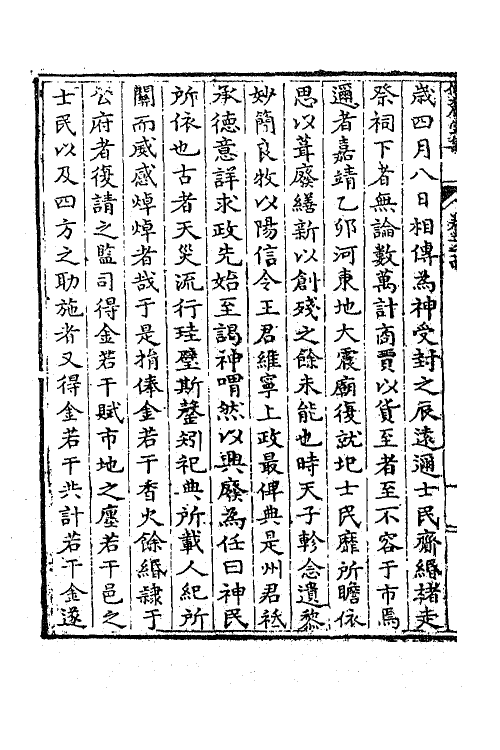 歲四月八日相傳為神受封之辰遠邇士民齎緡楮走
祭祠下者無論數萬計商賈以貨至者至不容于市焉
邇者嘉靖乙卯河東地大震廟復就圯士民靡所瞻依
思以葺廢繕新以創殘之餘未能也時天子軫念遺黎
妙簡良牧以陽信令王君維寧上政最俾典是州君祗
承德意詳求政先始至謁神喟然以興廢為任曰神民
所依也古者天災流行珪璧斯罄矧祀典所載人紀所
關而威感焯焯者哉于是捐俸金若干香火餘緡隸于
公府者復請之監司得金若干賦市地之廛若干邑之
士民以及四方之助施者又得金若干共計若干金遂